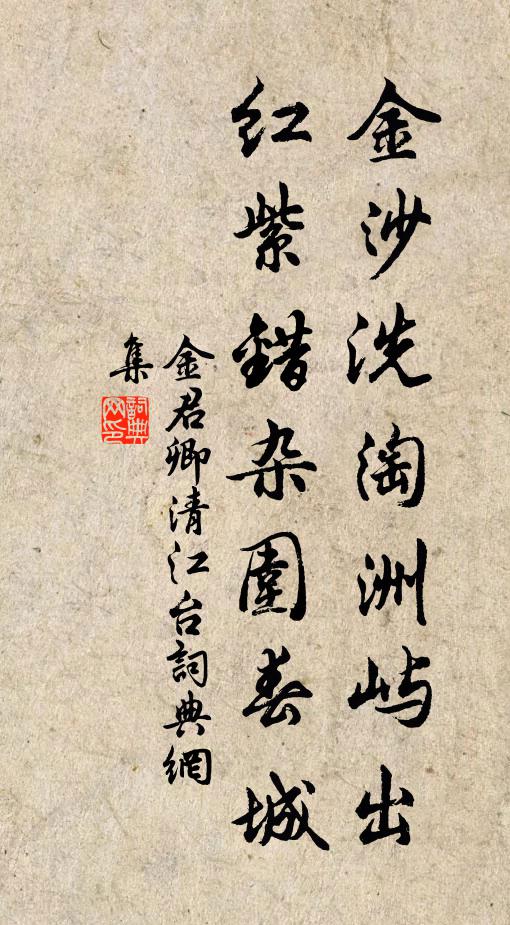 金沙洗淘洲屿出
红紫錯杂圍春城
金君卿清江台詞典網
集
詞典网印